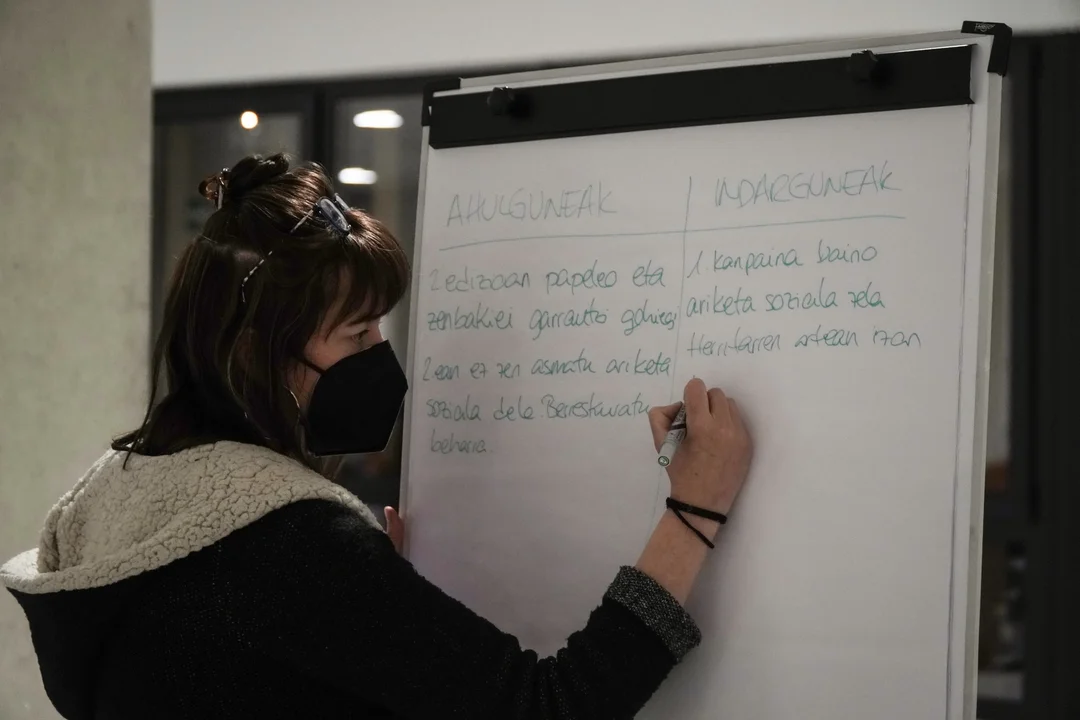 AHULGUNEAK
2 edizoan papeleo eta
zenbakiei garrantzi gehiegi
2 ean ez zen asmatu ariketa
soziala dela. Berrestauratu
beharra.
INDARGUNEAK
1. kanpaina baino
ariketa soziala zela
Herritarren artean izan